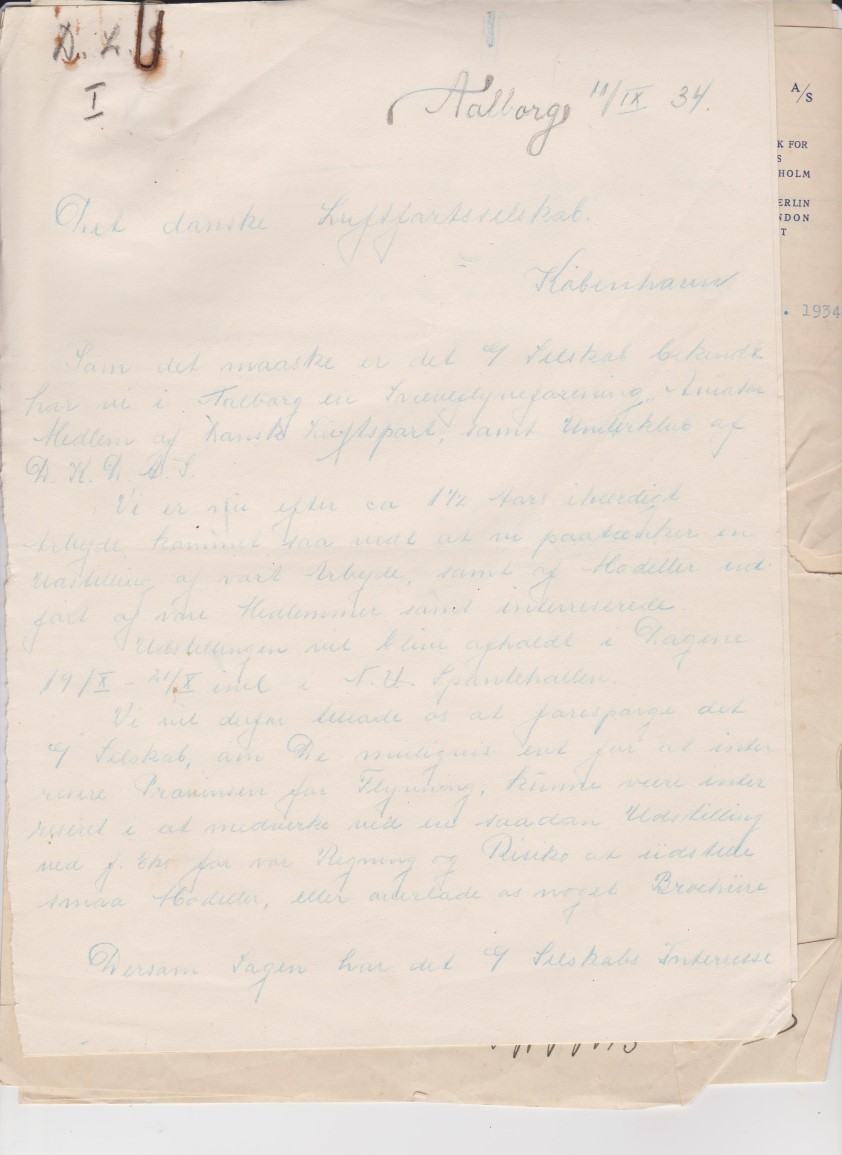 D. L.
I
Aalborg 11/IX 34.
A/S
K FOR
S
HOLM
ERLIN
NDON
T
Det danske Luftfartsselskab.
København
. 1934
Som det maaske er det Ϥ Selskab bekendt
har vi i Aalborg en Svæveflyveforening,
Medlem af Dansk Luftsport, samt Underklub af
D. K. D. A. S.
Vi er nu efter ca 1½ Aars ihærdigt
Arbejde kommet saa vidt at vi paatænker en
Udstilling af vort Arbejde, samt af Modeller ud
ført af vore Medlemmer samt interreserede.
Udstillingen vil blive afholdt i Dagene
19/X - 21/X incl i N. U. Spantehallen.
Vi vil derfor tillade os at forespørge det
Ϥ Selskab, om De muligvis evt for at inter
resere Provinsen for Flyvning, kunne være inter
reseret i at medvirke ved en saadan Udstilling
ved f. Eks for vor Regning og Risiko at udstille
smaa Modeller, eller overlade os noget Brochure
Dersom Sagen har det Ϥ Selskabs Interesse